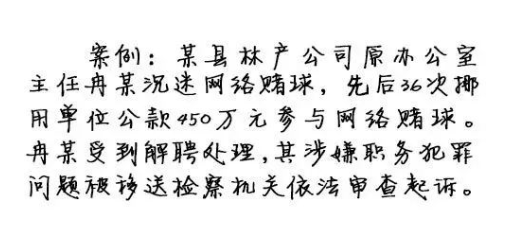 案例：某县林产公司原办公室
主任冉某沉迷网络赌球，先后36次挪
用单位公款450万元参与网络赌球。
冉某受到解聘处理，其涉嫌职务犯罪
问题被移送检察机关依法审查起诉。